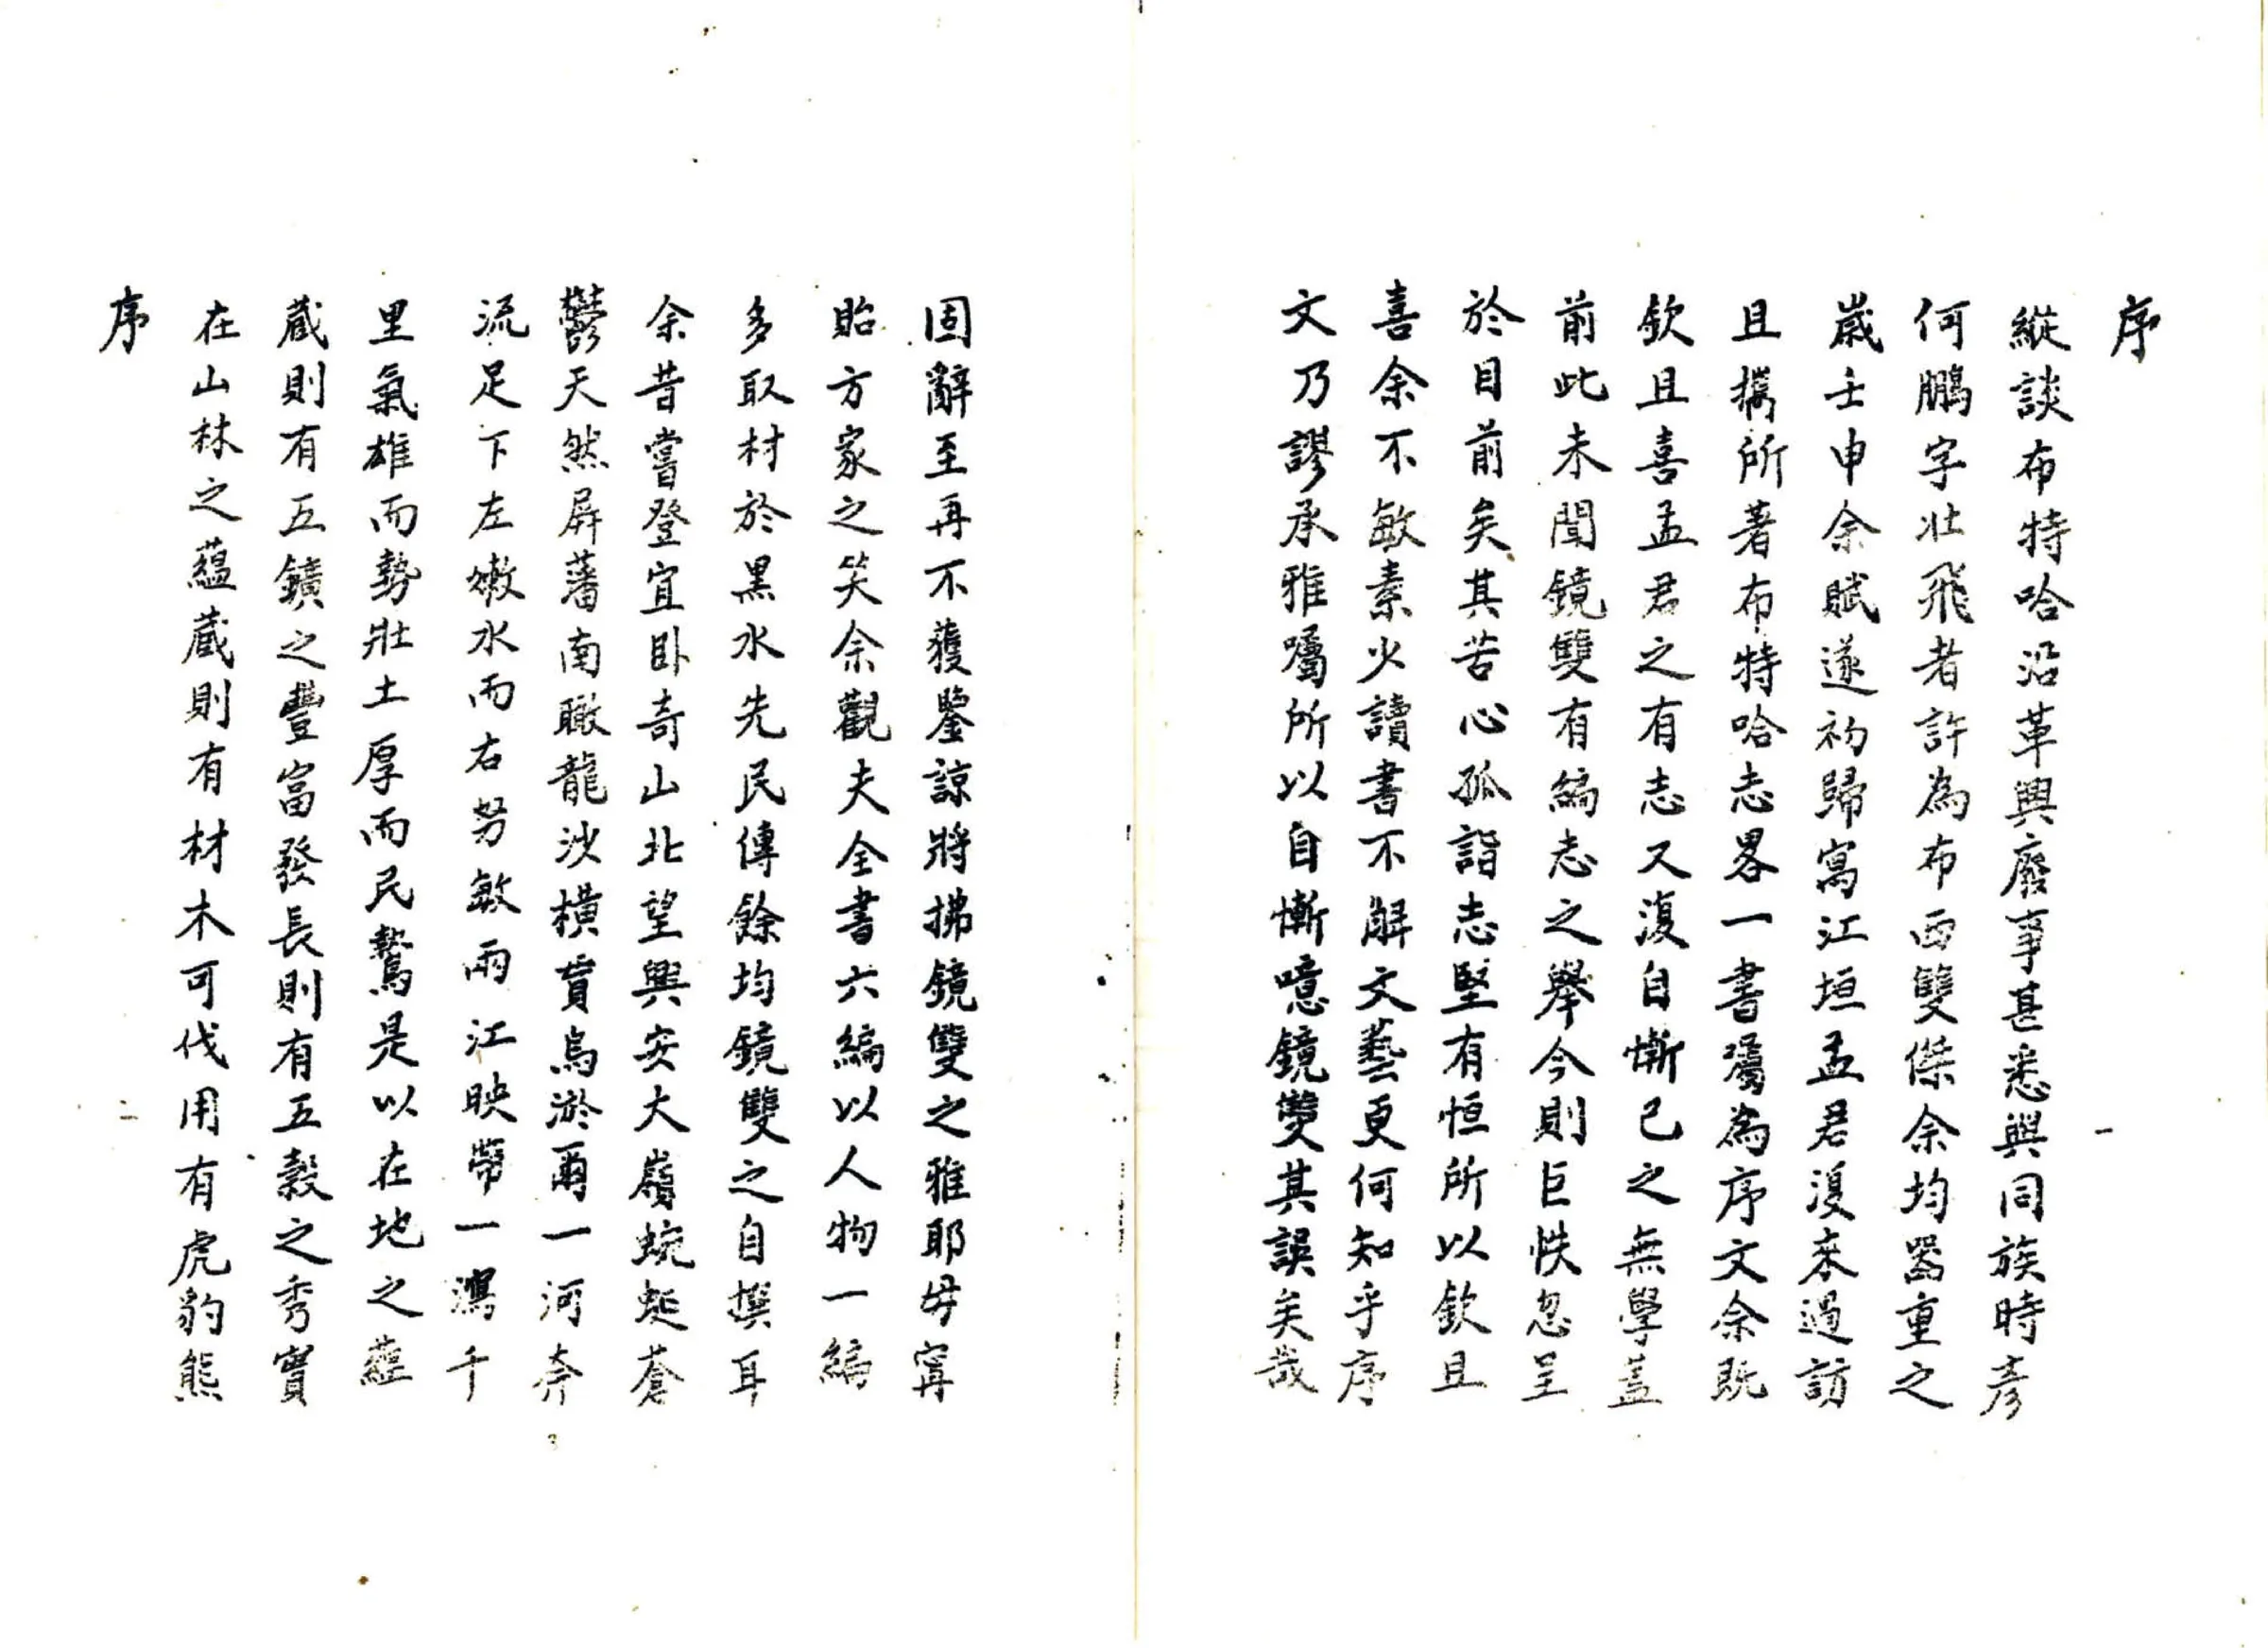 序
一
縱談布特哈沿革興廢事甚悉與同族時彥
何鵬字壯飛者許為布西雙傑余均器重之
歲壬申余賦遂初歸寓江垣孟君復來過訪
且攜所著布特哈志畧一書囑為序文余既
欽且喜孟君之有志又復自慚己之無學蓋
前此未聞鏡雙有編志之舉今則巨帙忽呈
於目前矣其苦心孤詣志堅有恒所以欽且
喜余不敏素少讀書不解文藝更何知乎序
文乃謬承雅囑所以自慚噫鏡雙其誤矣哉
固辭至再不獲鑒諒將拂鏡雙之雅耶毋寧
貽方家之笑余觀夫全書六編以人物一編
多取材於黑水先民傳餘均鏡雙之自撰耳
余昔嘗登宜卧奇山北望興安大嶺蜿蜒蒼
鬱天然屏藩南瞰龍沙橫貫烏淤爾一河奔
流足下左嫩水而右努敏兩江映帶一瀉千
里氣雄而勢壯土厚而民鷙是以在地之蘊
蔵則有五鑛之豐富發長則有五穀之秀實
在山林之蘊蔵則有材木可伐用有虎豹熊
序
二